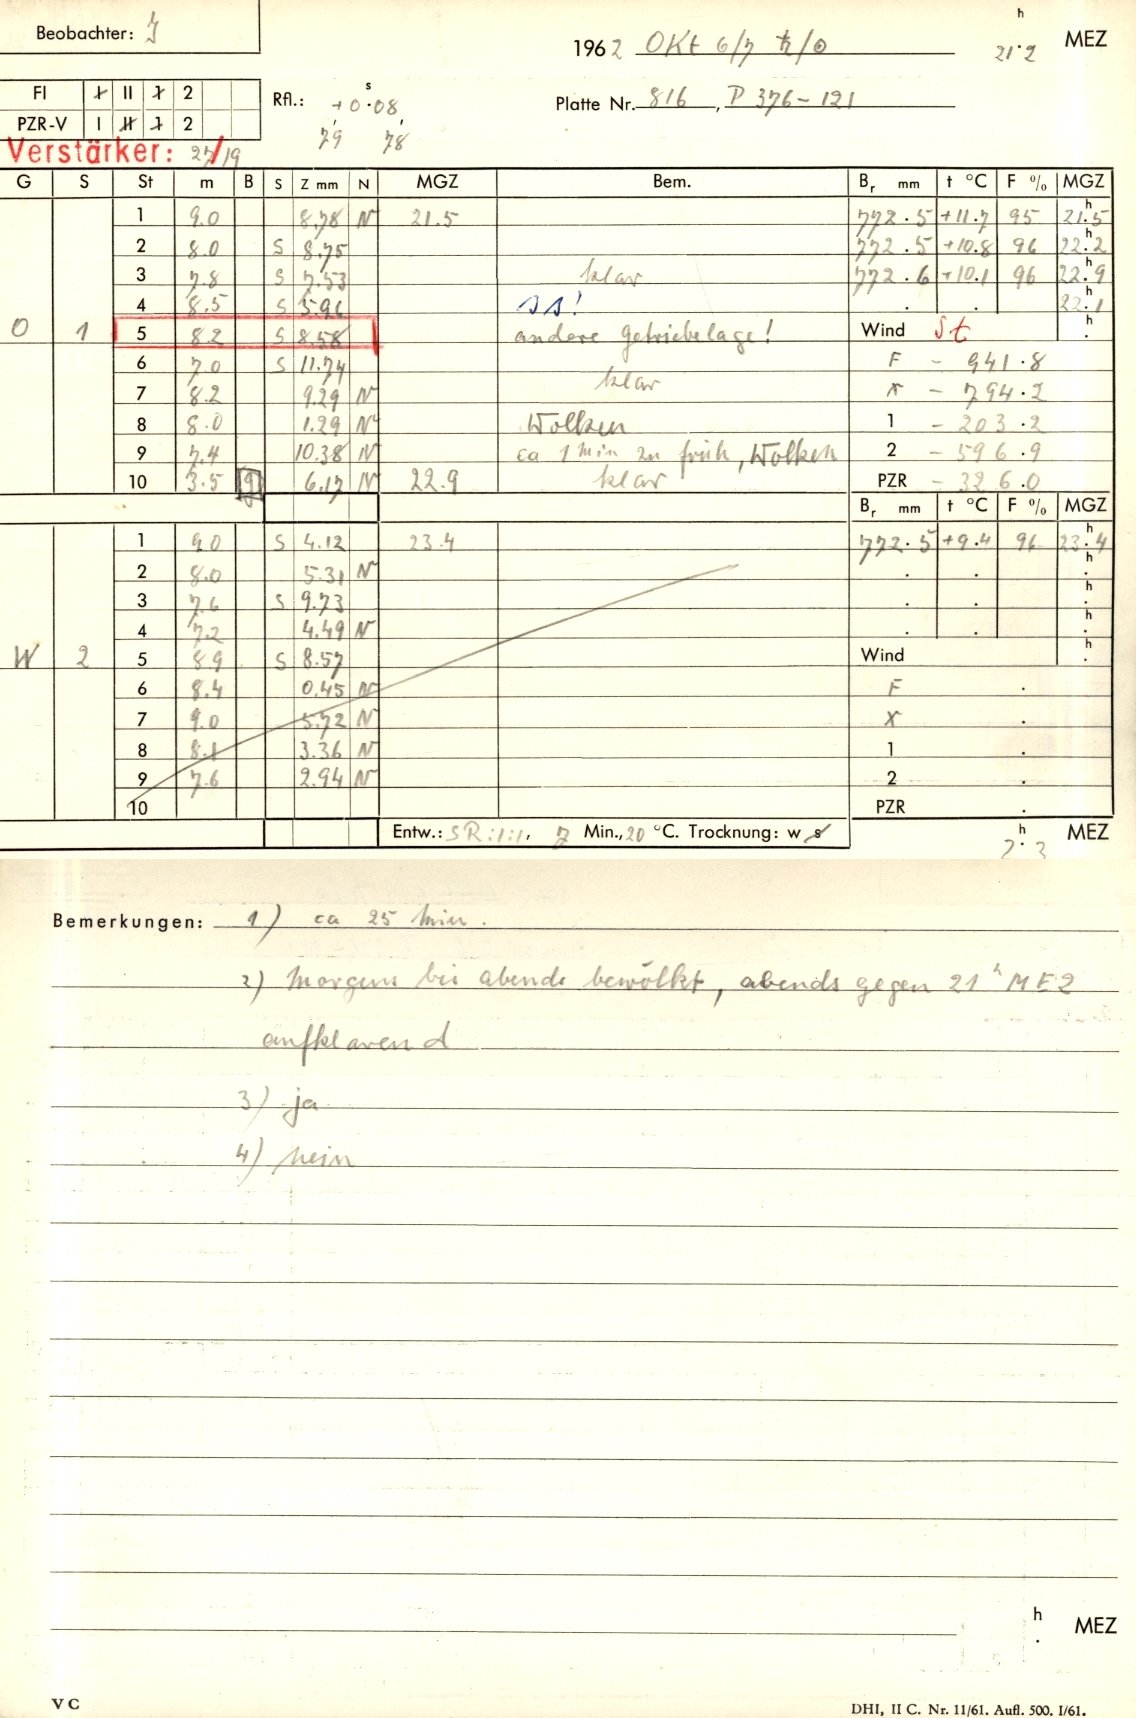 Beobachter: J
1962 Okt 6/7 ♄/☉ 21.2 h MEZ
FI I II 1 2
PZR-V I II 1 2
Rfl.: +0.08 s
79 78
Platte Nr. 816, P 376-121
Verstärker: 27/19
G S St m B S Z mm N MGZ Bem. Br mm t °C F % MGZ
1 9.0 8.78 N 21.5 772.5 +11.7 95 21.5 h
2 8.0 S 8.75 772.5 +10.8 96 22.2 h
3 7.8 S 7.53 klar 772.6 +10.1 96 22.9 h
4 8.5 S 5.96 SS! . . 22.1 h
O 1 5 8.2 S 8.58 andere Getriebelage! Wind St h .
6 7.0 S 11.74 F - 941.8
7 8.2 9.29 N klar X - 794.2
8 8.0 1.29 N Wolken 1 - 203.2
9 7.4 10.38 N ca 1 min zu früh, Wolken 2 - 596.9
10 3.5 9 6.17 N 22.9 klar PZR - 326.0
Br mm t °C F % MGZ
1 9.0 S 4.12 23.4 772.5 +9.4 96 23.4 h
2 8.0 5.31 N . . h .
3 7.6 S 9.73 . . h .
4 7.2 4.49 N . . h .
W 2 5 8.9 S 8.57 Wind h .
6 8.4 0.45 N F .
7 9.0 5.72 N X .
8 8.1 3.36 N 1 .
9 7.6 2.94 N 2 .
10 PZR .
Entw.: SR:1:1, 7 Min., 20 °C. Trocknung: w s 2.3 h MEZ
Bemerkungen: 1) ca 25 min.
2) Morgens bis abends bewölkt, abends gegen 21 h MEZ
aufklarend
3) ja
4) nein
h . MEZ
V C DHI, II C. Nr. 11/61. Aufl. 500. I/61.